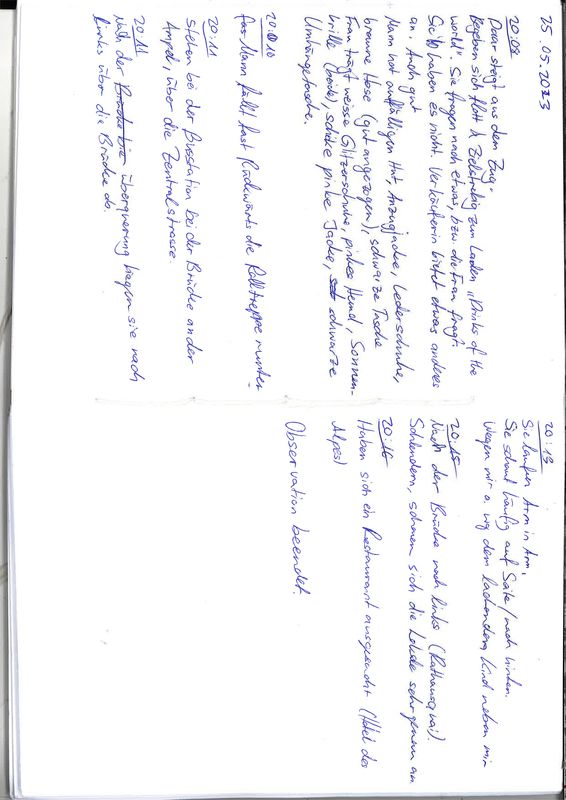 25.05.2023
20:08
Paar steigt aus dem Zug.
Begeben sich flott & Zielstrebig zum Laden „Drinks of the
world". Sie fragen nach etwas, bzw. die Frau fragt.
Sie haben es nicht. Verkäuferin bietet etwas anderes
an. Auch gut
Mann mit auffälligem Hut, Anzugjacke, Lederschuhe,
braune Hose (gut angezogen), schwarze Tasche
Frau trägt weisse Glitzerschuhe, pinkes Hemd, Sonnen-
brille (beide), schicke pinke Jacke, schwarze
Umhängetasche.
20:10
Das Mann fällt fast Rückwärts die Rolltreppe runter.
20:11
Stehen bei der Busstation bei der Brücke an der
Ampel, über die Zentralstrasse.
20:14
Nach der Brücke überquerung biegen sie nach
links über die Brücke ab.
20:13
Sie laufen Arm in Arm.
Sie schaut häufig auf Seite / nach hinten.
Wegen mir o. wg dem lachendem Kind neben mir
20:15
Nach der Brücke nach links (Rathausquai).
Schlendern, schauen sich die Lokale sehr genau an
20:16
Haben sich ein Restaurant ausgesucht (Hotel des
Alpes)
Observation beendet.